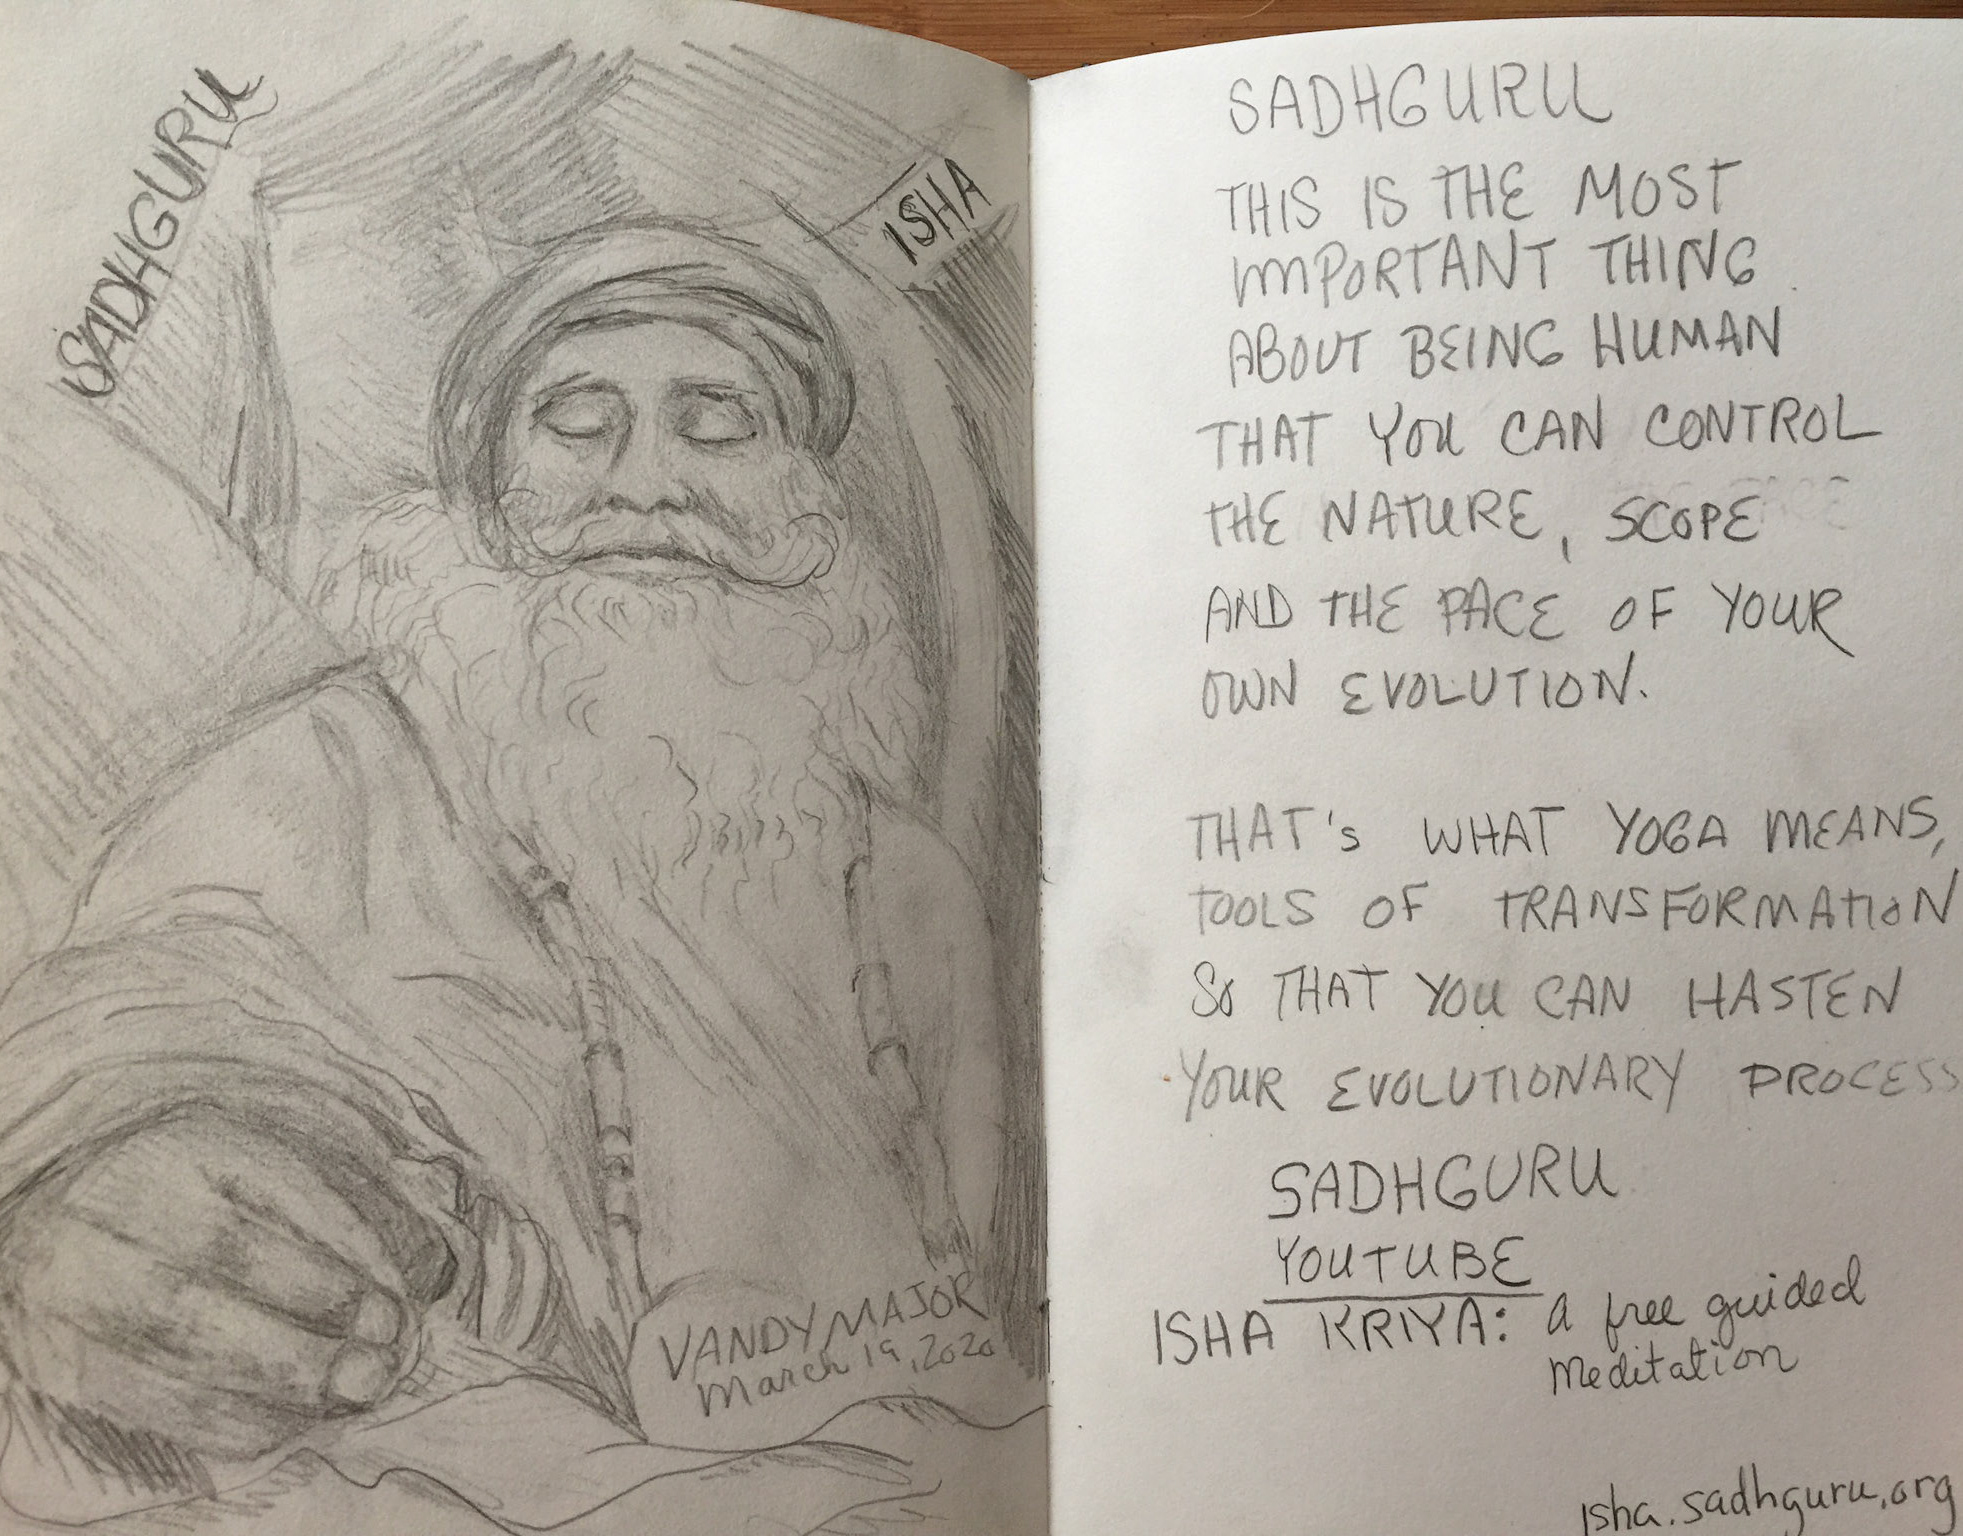 SADHGURU
ISHA
VANDY MAJOR
March 19, 2020
SADHGURU
THIS IS THE MOST
IMPORTANT THING
ABOUT BEING HUMAN
THAT YOU CAN CONTROL
THE NATURE, SCOPE
AND THE PACE OF YOUR
OWN EVOLUTION.
THAT's WHAT YOGA MEANS,
TOOLS OF TRANSFORMATION
SO THAT YOU CAN HASTEN
YOUR EVOLUTIONARY PROCESS
SADHGURU
YOUTUBE
ISHA KRIYA: a free guided
meditation
isha.sadhguru.org